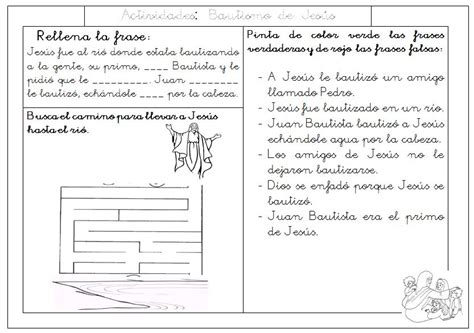 Actividades: Bautismo de Jesús
Rellena la frase:
Jesús fue al rió donde estaba bautizando
a la gente, su primo, ____ Bautista y le
pidió que le _________. Juan _______
le bautizó, echándole ____ por la cabeza.
Busca el camino para llevar a Jesús
hasta el rió.
Pinta de color verde las frases
verdaderas y de rojo las frases falsas:
- A Jesús le bautizó un amigo
llamado Pedro.
- Jesús fue bautizado en un rio.
- Juan Bautista bautizó a Jesús
echándole agua por la cabeza.
- Los amigos de Jesús no le
dejaron bautizarse.
- Dios se enfadó porque Jesús se
bautizo.
- Juan Bautista era el primo
de Jesús.